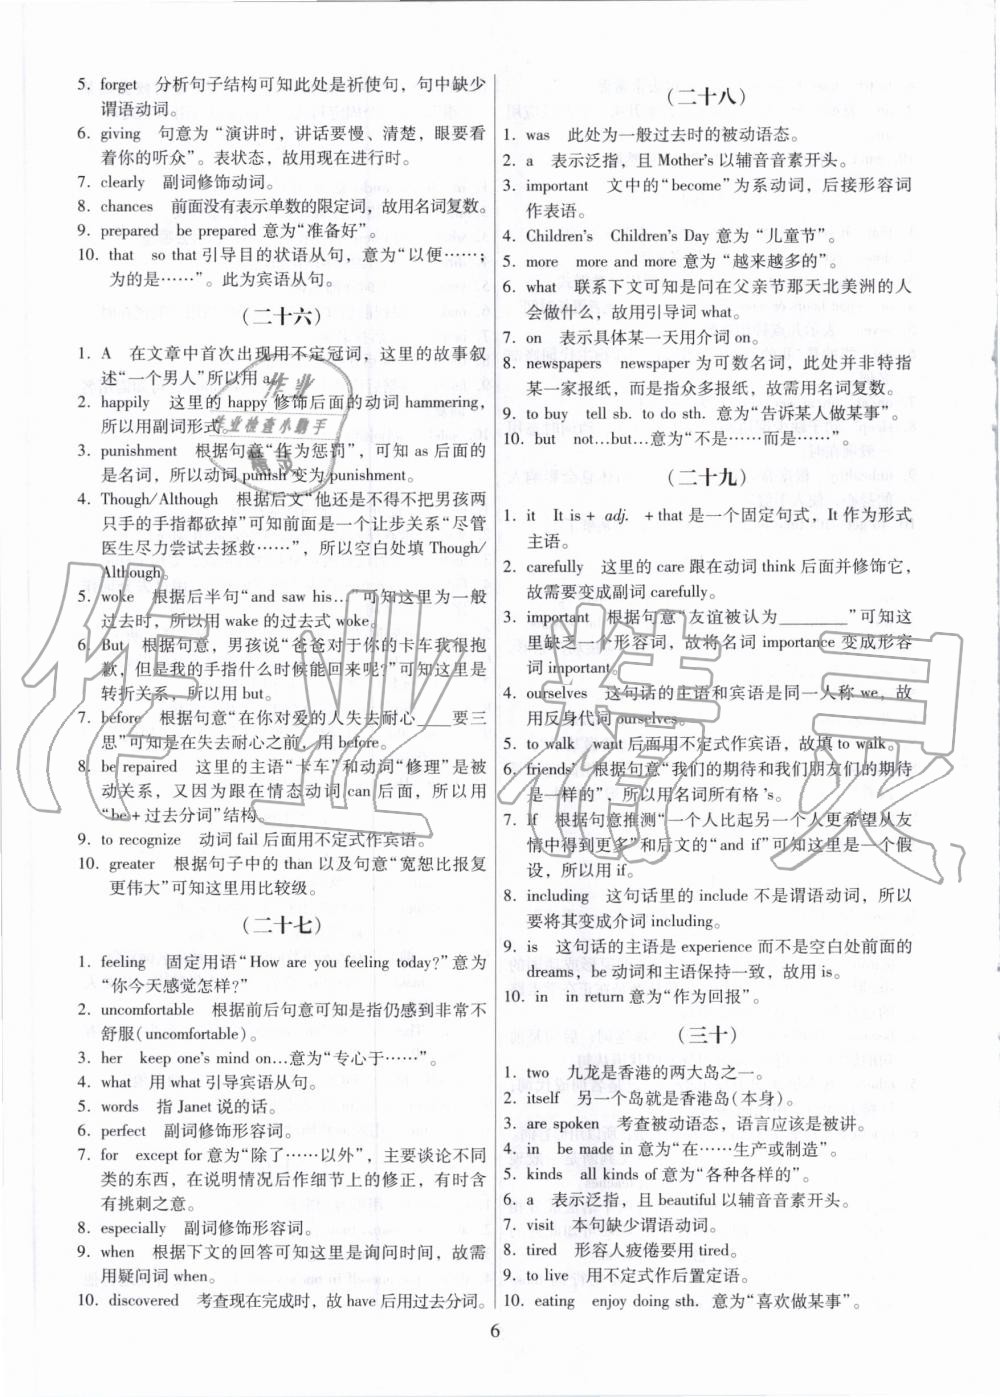 5. forget 分析句子结构可知此处是祈使句，句中缺少
谓语动词。
6. giving 句意为“演讲时，讲话要慢、清楚，眼要看
着你的听众”。表状态，故用现在进行时。
7. clearly 副词修饰动词。
8. chances 前面没有表示单数的限定词，故用名词复数。
9. prepared be prepared 意为“准备好”。
10. that so that 引导目的状语从句，意为“以便……；
为的是……”。此为宾语从句。
（二十六）
1. A 在文章中首次出现用不定冠词，这里的故事叙
述“一个男人”所以用 a
2. happily 这里的 happy 修饰后面的动词 hammering,
所以用副词形式。
3. punishment 根据句意“作为惩罚”，可知 as 后面的
是名词，所以动词 punish 变为 punishment.
4. Though/Although 根据后文“他还是不得不把男孩两
只手的手指都砍掉”可知前面是一个让步关系“尽管
医生尽力尝试去拯救……”，所以空白处填 Though/
Although。
5. woke 根据后半句“and saw his… 可知这里为一般
过去时，所以用 wake 的过去式 woke。
6. But 根据句意，男孩说“爸爸对于你的卡车我很抱
歉，但是我的手指什么时候能回来呢?”可知这里是
转折关系，所以用 but。
7. before 根据句意“在你对爱的人失去耐心____要三
思”可知是在失去耐心之前，用 before。
8. be repaired 这里的主语“卡车”和动词“修理”是被
动关系，又因为跟在情态动词 can 后面，所以用
“be+过去分词”结构。
9. to recognize 动词 fail 后面用不定式作宾语。
10. greater 根据句子中的 than 以及句意“宽恕比报复
更伟大”可知这里用比较级。
（二十七）
1. feeling 固定用语“How are you feeling today?”意为
“你今天感觉怎样?”
2. uncomfortable 根据前后句意可知是指仍感到非常不
舒服(uncomfortable)。
3. her keep one's mind on…意为“专心于……”。
4. what 用 what 引导宾语从句。
5. words 指 Janet 说的话。
6. perfect 副词修饰形容词。
7. for except for 意为“除了……以外”，主要谈论不同
类的东西，在说明情况后作细节上的修正，有时含
有挑刺之意。
8. especially 副词修饰形容词。
9. when 根据下文的回答可知这里是询问时间，故需
用疑问词 when。
10. discovered 考查现在完成时，故 have 后用过去分词。
（二十八）
1. was 此处为一般过去时的被动语态。
2. a 表示泛指，且 Mother's 以辅音音素开头。
3. important 文中的“become”为系动词，后接形容词
作表语。
4. Children's Children's Day 意为“儿童节”。
5. more more and more 意为“越来越多的”。
6. what 联系下文可知是问在父亲节那天北美洲的人
会做什么，故用引导词 what。
7. on 表示具体某一天用介词 on。
8. newspapers newspaper 为可数名词，此处并非特指
某一家报纸，而是指众多报纸，故需用名词复数。
9. to buy tell sb. to do sth. 意为“告诉某人做某事”。
10. but not…but…意为“不是……而是……”。
（二十九）
1. it It is + adj. + that 是一个固定句式，It 作为形式
主语。
2. carefully 这里的 care 跟在动词 think 后面并修饰它，
故需要变成副词 carefully。
3. important 根据句意“友谊被认为________”可知这
里缺乏一个形容词，故将名词 importance 变成形容
词 important。
4. ourselves 这句话的主语和宾语是同一人称 we，故
用反身代词 ourselves。
5. to walk want 后面用不定式作宾语，故填 to walk。
6. friends' 根据句意“我们的期待和我们朋友们的期待
是一样的”，所以用名词所有格 's。
7. If 根据句意推测“一个人比起另一个人更希望从友
情中得到更多”和后文的“and if”可知这里是一个假
设，所以用 if。
8. including 这句话里的 include 不是谓语动词，所以
要将其变成介词 including。
9. is 这句话的主语是 experience 而不是空白处前面的
dreams, be 动词和主语保持一致，故用 is。
10. in in return 意为“作为回报”。
（三十）
1. two 九龙是香港的两大岛之一。
2. itself 另一个岛就是香港岛(本身)。
3. are spoken 考查被动语态，语言应该是被讲。
4. in be made in 意为“在……生产或制造”。
5. kinds all kinds of 意为“各种各样的”。
6. a 表示泛指，且 beautiful 以辅音音素开头。
7. visit 本句缺少谓语动词。
8. tired 形容人疲倦要用 tired。
9. to live 用不定式作后置定语。
10. eating enjoy doing sth. 意为“喜欢做某事”。
6
作业
作业检查小帮手
精灵
作业精灵